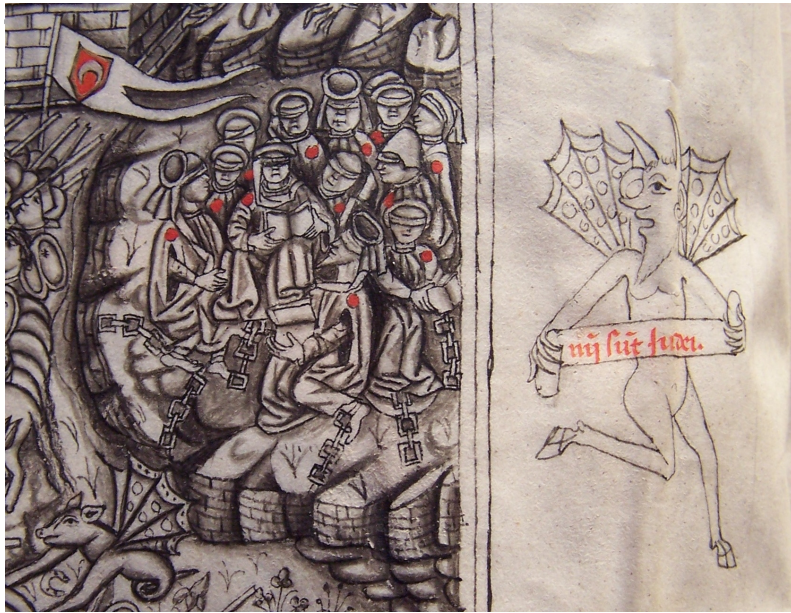 hij sūt iudei.